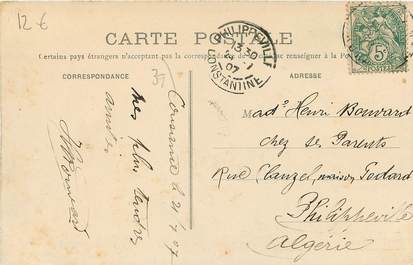 12 €
CARTE POSTALE
Certains pays étrangers n'acceptant pas la correspondance de ce côté, se renseigner à la Poste
CORRESPONDANCE
ADRESSE
37
PHILIPPEVILLE
13 30
21 - 7
07
CONSTANTINE
5c
le 21 7 07
mes plus tendres
amitiés
Bouvard
Mad.e Henri Bouvard
chez ses Parents
Rue Clauzel, maison Todard
Philippeville
Algérie